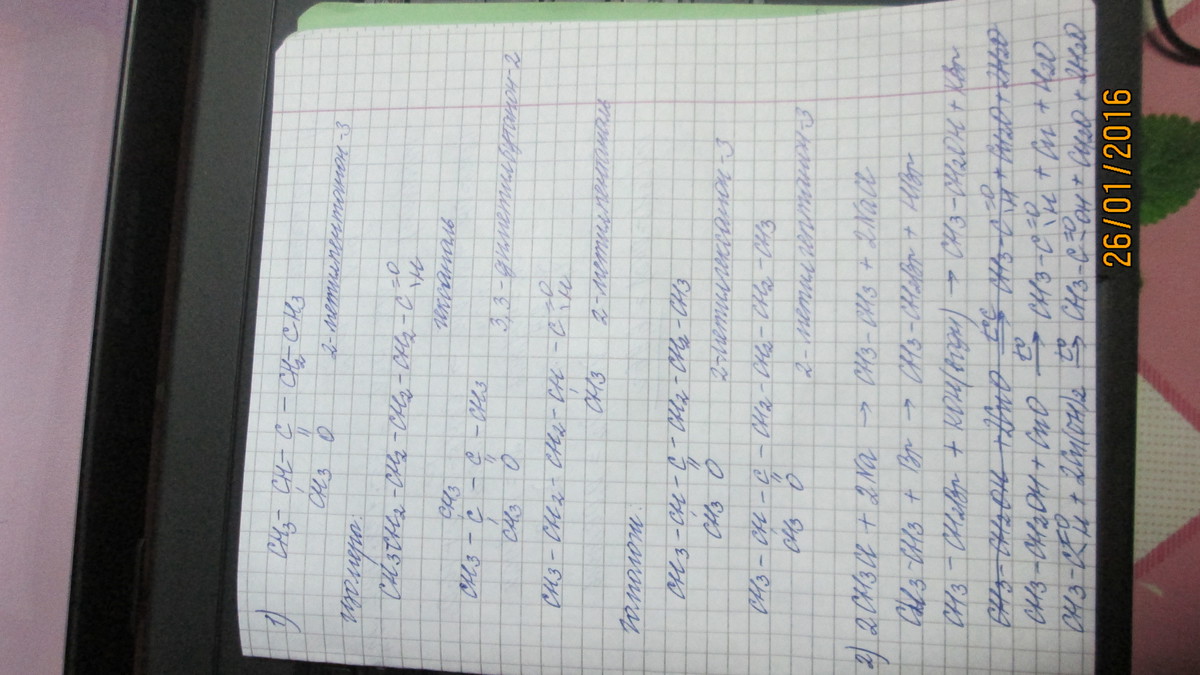 1) CH3 - CH - C - CH2 - CH3
CH3 O
2-метилпентанон-3
изомеры:
CH3-CH2-CH2-CH2-CH2-C=O
H
гексаналь
CH3
CH3 - C - C - CH3
CH3 O
3,3-диметилбутанон-2
CH3-CH2-CH2-CH-C=O
H
CH3
2-метилпентаналь
Гомологи:
CH3-CH-C-CH2-CH2-CH3
CH3 O
2-метилгексанон-3
CH3-CH-C-CH2-CH2-CH2-CH3
CH3 O
2-метилгептанон-3
2) 2CH3Cl + 2Na → CH3-CH3 + 2NaCl
CH3-CH3 + Br → CH3-CH2Br + HBr
CH3-CH2Br + KOH(водн) → CH3-CH2OH + KBr
CH3-CH2OH + 2CuO → CH3-C=O H + Cu2O + 2H2O
CH3-CH2OH + CuO t° → CH3-C=O H + Cu + H2O
CH3-C=O H + 2Cu(OH)2 t° → CH3-C=O OH + Cu2O + 2H2O
26/01/2016